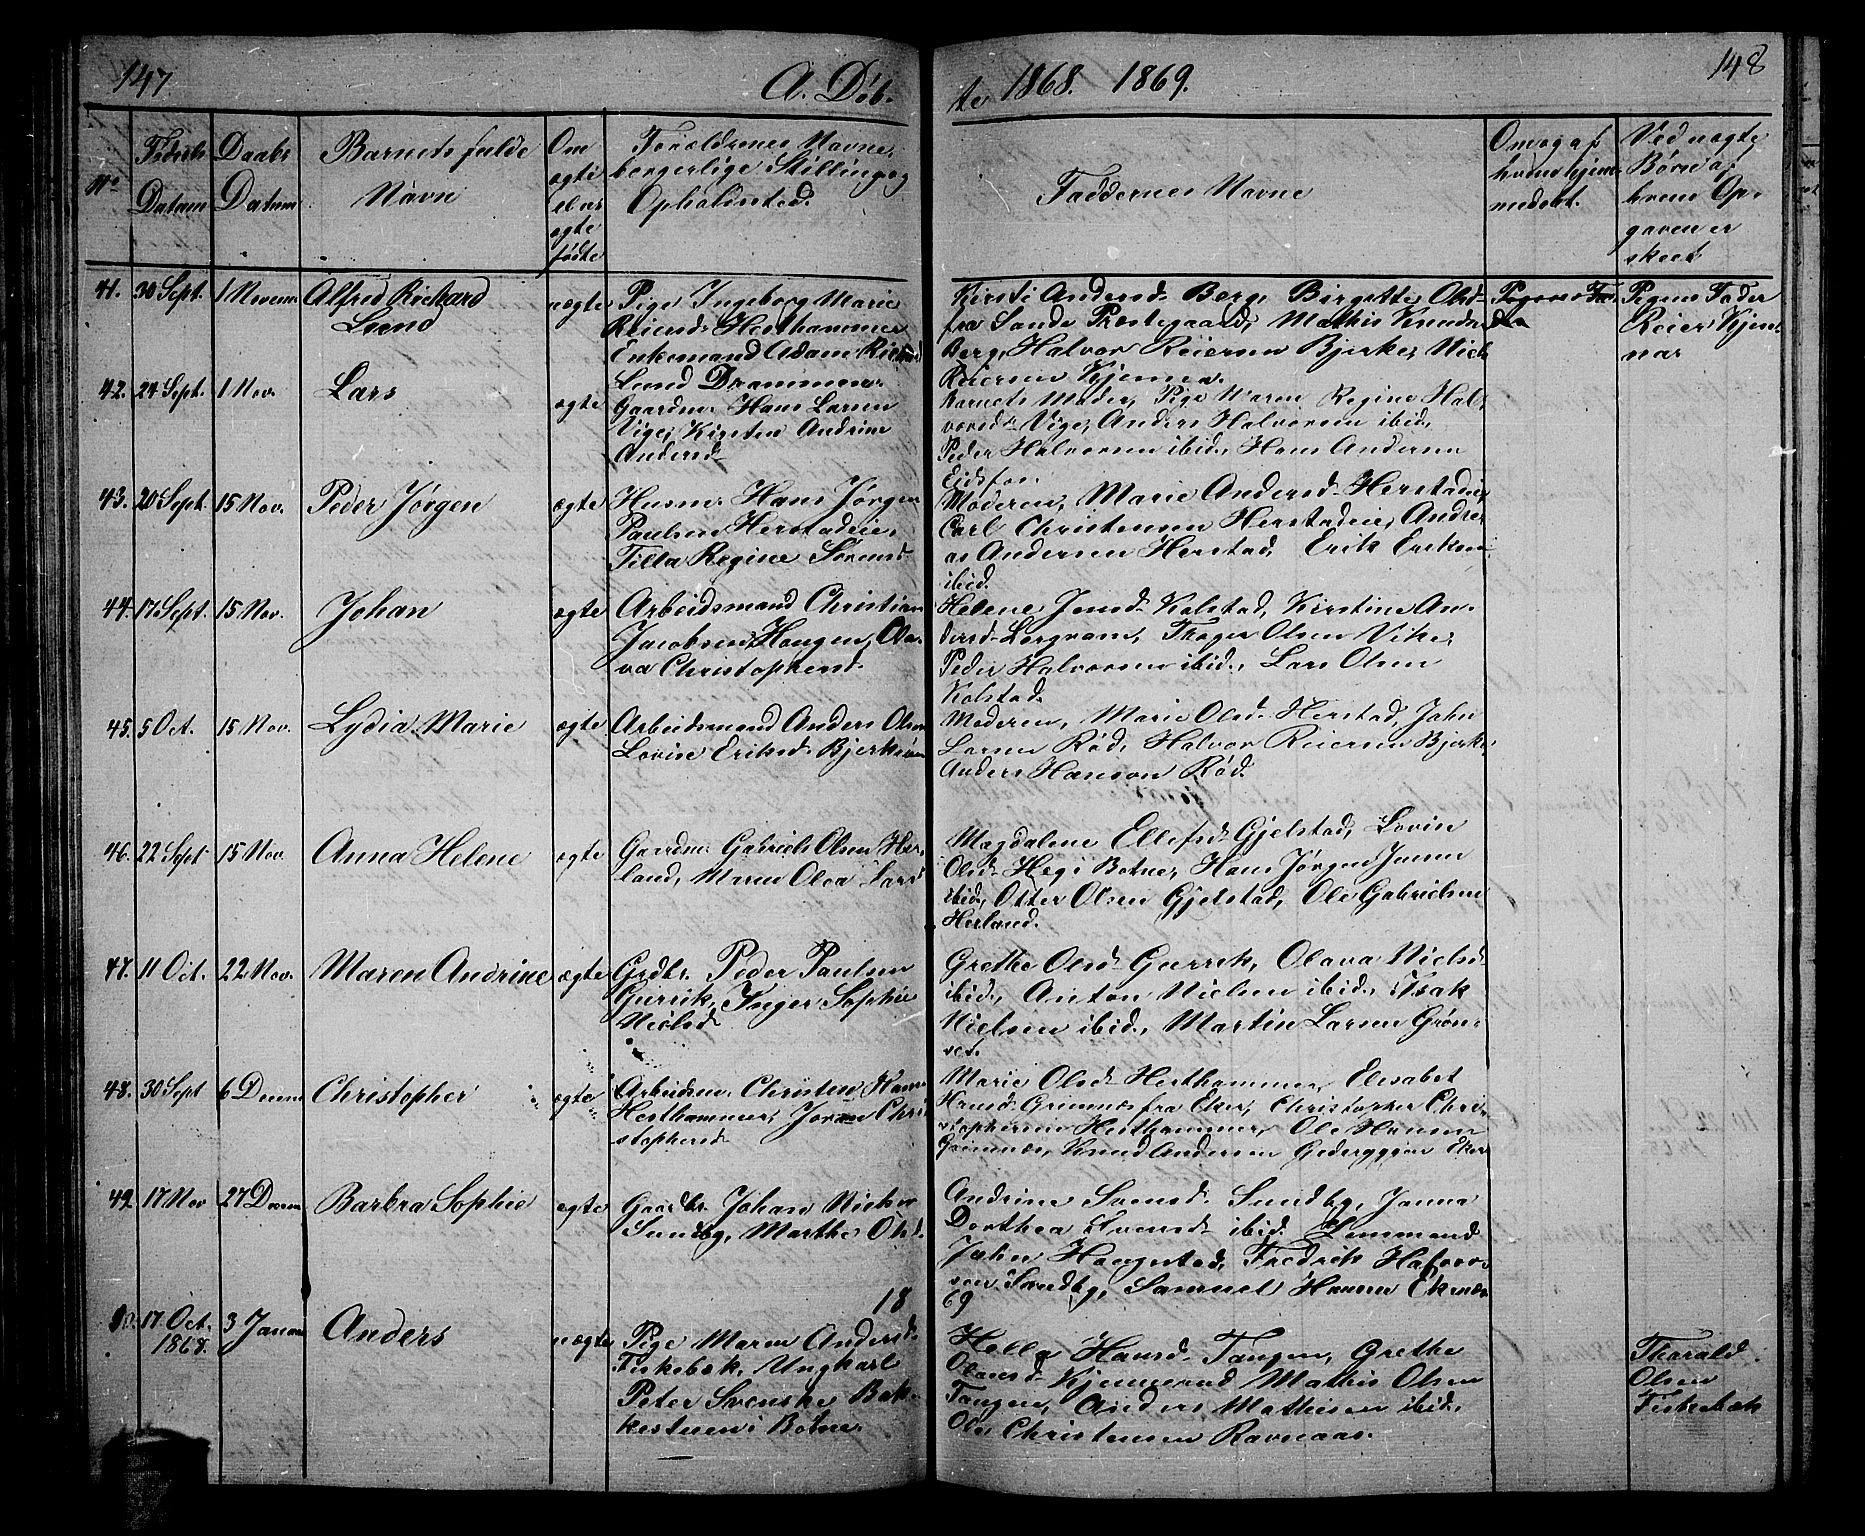 147 A. Døb-
te 1868. 1869. 148
No
Fødsels Datum
Daabs Datum
Barnets fulde Navn
Om ægte eller uægte fødte
Forældrenes Navne, borgerlige Stilling og Opholdssted.
Faddernes Navne
Om og af hvem hjemmedøbt.
Ved uægte Børn af hvem Opgaven er skeet
41. 30 Sept. 1 Novem. Alfred Richard Lund uægte
Pige Ingeborg Marie
Reiersd. Hesthammer
Enkemand Adam
Lund Drammen.
Kirsti Andersd. Berg, Birgitte Olsd.
fra Sande Præstegaard, Mathis Knuds.
Berg, Halvor Reiersen Bjerke, Niels
Reiersen Kjemen.
Pigens Fader
Reier Kjem
nar
42. 24 Sept. 1 Nov. Lars ægte
Gaardm. Hans Larsen
Vige, Kirsten Andrine
Andersd.
Barnets Moder, Pige Maren Regine Hal-
vorsd. Vige, Anders Halvorsen ibid.
Peder Halvorsen ibid, Hans Andersen
Eidsfos.
43. 20 Sept. 15 Nov. Peder Jørgen ægte
Husm. Hans Jørgen
Paulsen Herstadeie,
Tilla Regine Sørensd.
Moderen, Marie Andersd. Herstadeie,
Carl Christensen Herstadeie, Andre-
as Andersen Herstad, Erik Eriksen
ibid.
44. 17 Sept. 15 Nov. Johan ægte
Arbeidsmand Christian
Jacobsen Haugen, Ola-
va Christophersd.
Helene Jensd. Kolstad, Kirstine An-
dersd. Langvam, Thoger Olsen Vike,
Peder Halvorsen ibid., Lars Olsen
Kolstad.
45. 5 Oct. 15 Nov. Lydia Marie ægte
Arbeidsmand Anders Olsen
Lovise Eriksd. Bjerksven
Moderen, Marie Olsd. Herstad, John
Larsen Rød, Halvor Reiersen Bjerke
Anders Hanson Rød.
46. 22 Sept. 15 Nov. Anna Helene ægte
Gaardm. Gabriels Olsen Her-
land, Maren Olea Larsd
Magdalene Ellefsd. Gjelstad, Lovise
Olsd. Heg i Botne, Hans Jørgen Jansen
ibid, Otter Olsen Gjelstad, Ole Gabrielsen
Herland.
47. 11 Oct. 22 Nov. Maren Andrine ægte
Grdbr. Peder Paulsen
Gurrik, Inger Sophie
Nielsd.
Grethe Olsd. Gurrik, Olava Nielsd
ibid, Anton Nielsen ibid., Isak
Nielsen ibid., Martin Larsen Grøn-
set.
48. 30 Sept 6 Decem Christopher ægte
Arbeidsm. Christen
Hesthammer, Joran Chri
stophersd.
Marie Olsd. Hesthammer, Elisabet
Hansd. Grimnes fra Eker, Christopher Chri-
stophersen Hesthammer, Ole Hansen
Grimnæs, Knud Andersen Eker
49. 17 Nov 27 Decem Barbra Sophie ægte
Gaardbr. Johan
Sundby, Marthe Olsd.
Andrine Svensd. Sundby, Janna
Dorthea Svensd. ibid.
John Haugestad, Fredrik Halvor
sen Sundby, Samuel Hansen Eknæs
18
69
17 Oct. 1868. 3 Januar Anders uægte
Pige Maren Andersd.
Fiskebæk, Ungkarl
Peter Svenske Bak-
kestuen i Botne.
Hella Hansd. Tangen, Grethe
Olavsd. Kjennerud Mathis Olsen
Tangen, Anders Mathisen ibid.
Ole Christensen Ravnaas.
Tharald
Olsen
Fiskebæk